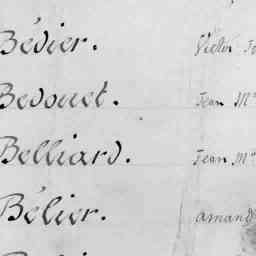 Bévier. Victor
Bedouet. Jean M
Belliard. Jean M
Bélier. amand